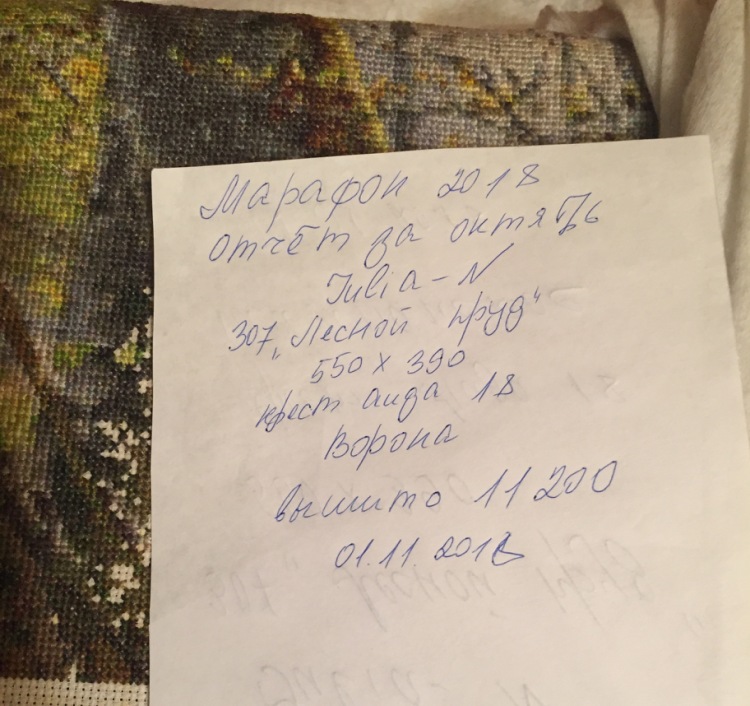 Марафон 2018
отчёт за октябрь
Iulia-N
307 „Лесной пруд"
550 x 390
крест аида 18
Ворона
вышито 11 200
01.11.2018